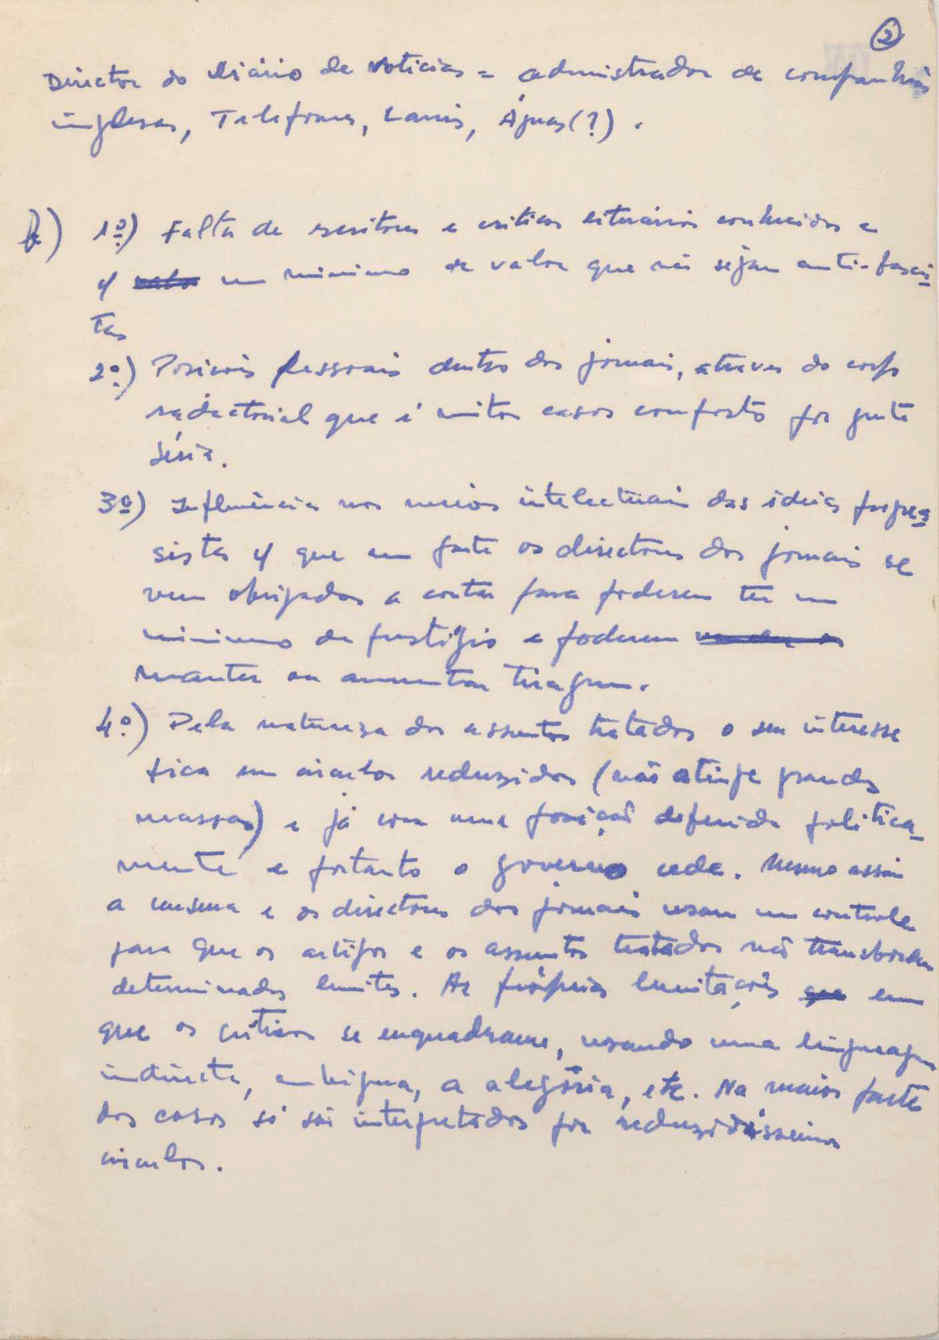 2
Director do Diário de Noticias = administrador de companhias
inglesas, Telefones, Carris, Águas (?).
1º) Falta de escritores e criticos literários conhecidos e
c/ um minimo de valor que não sejam anti-fascis-
tas
2º) Posicões pessoais dentro dos jornais, atraves do corpo
redactorial que é muitos casos composto por gente
séria.
3º) Influência nos meios intelectuais das ideias progres-
sistas c/ que em parte os directores dos jornais se
vem obrigados a contar para poderem ter um
minimo de prestígio e poderem
manter ou aumentar tiragem.
4º) Pela natureza dos assuntos tratados o seu interesse
fica em circulos reduzidos (não atinge grandes
massas) e já com uma posição definida politica-
mente e portanto o governo cede. Mesmo assim
a censura e os directores dos jornais usam um controle
para que os artigos e os assuntos tratados não transbordem
determinados limites. As próprias limitações em
que os criticos se enquadrame, usando uma linguagem
indirecta, ambigua, a alegoria, etc. Na maior parte
dos casos só são interpretados por reduzidissimos
circulos.